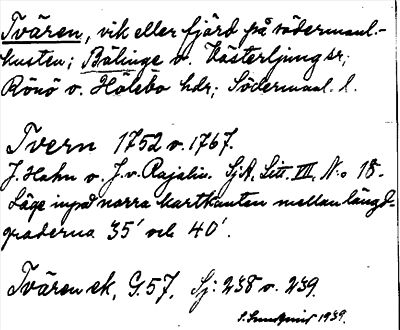 Tvären, vik eller fjärd på södermanl.-
kusten; Bälinge o. Västerljung sr;
Rönö o. Hölebo hdr; Södermanl. l.
Tvern 1752 o. 1767.
J. Hahn o. J. v. Rajalin. SjA, Litt. III, N:o 18.
Läge inpå norra kartkanten mellan längd-
graderna 35' och 40'.
Tvären ek, G.57, Sj: 238 o. 239.
1939.